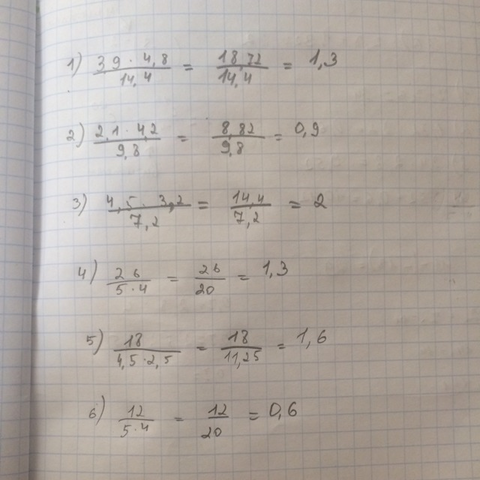 1) 39 · 4,8 / 14,4 = 18,72 / 14,4 = 1,3
2) 2,1 · 4,2 / 9,8 = 8,82 / 9,8 = 0,9
3) 4,5 · 3,2 / 7,2 = 14,4 / 7,2 = 2
4) 26 / 5·4 = 26 / 20 = 1,3
5) 18 / 4,5·2,5 = 18 / 11,25 = 1,6
6) 12 / 5·4 = 12 / 20 = 0,6